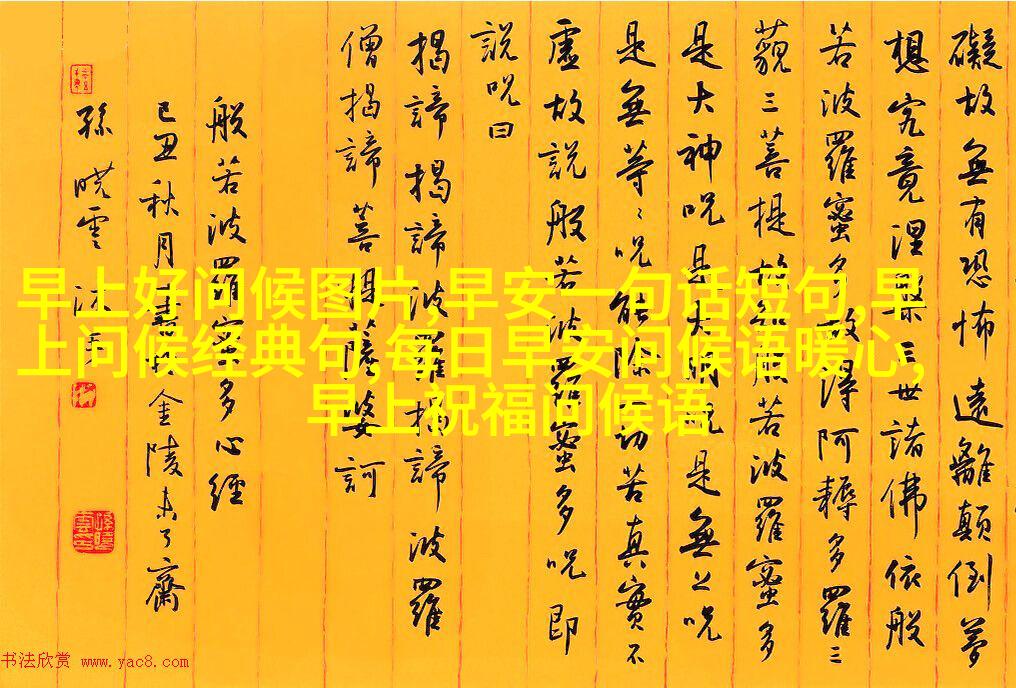 礙故無有恐怖遠離顛倒夢
想究竟涅槃三世諸佛依般
若波羅蜜多故得阿耨多羅三
藐三菩提故知般若波羅蜜多
是大神咒是大明咒是無上咒
是無等〻咒能除一切苦真實不
虛故說般若波羅蜜多咒即
說咒曰
揭諦揭諦波羅揭諦波羅
僧揭諦菩提薩婆訶
般若波羅蜜多心經
己丑秋月書於金陵未了齋
孫曉雲沐手
早上好问候图片,早安一句话短句,早
上问候经典句,每日早安问候语暖心,
早上祝福问候语
书法欣赏 www.yac8.com